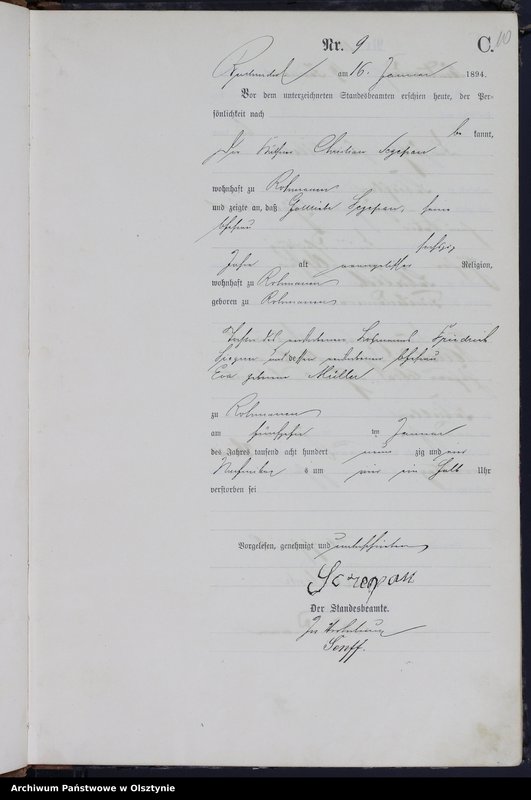 Nr. 9 C. 10
am 16. Januar 1894.
Vor dem unterzeichneten Standesbeamten erschien heute, der Per-
sönlichkeit nach
be kannt,
Der Christian
wohnhaft zu Rohmanen
und zeigte an, daß seine
Ehefrau
sechzig
Jahre alt evangelischer Religion,
wohnhaft zu Rohmanen
geboren zu Rohmanen
Tochter des verstorbenen Friedrich
und dessen verstorbener Ehefrau
Eva geborene Müller
zu Rohmanen
am fünfzehn ten Januar
des Jahres tausend acht hundert neun zig und vier
Nachmittag s um vier ein halb Uhr
verstorben sei
Vorgelesen, genehmigt und unterschrieben
Sczepan
Der Standesbeamte.
In Vertretung
Senff.
Archiwum Państwowe w Olsztynie